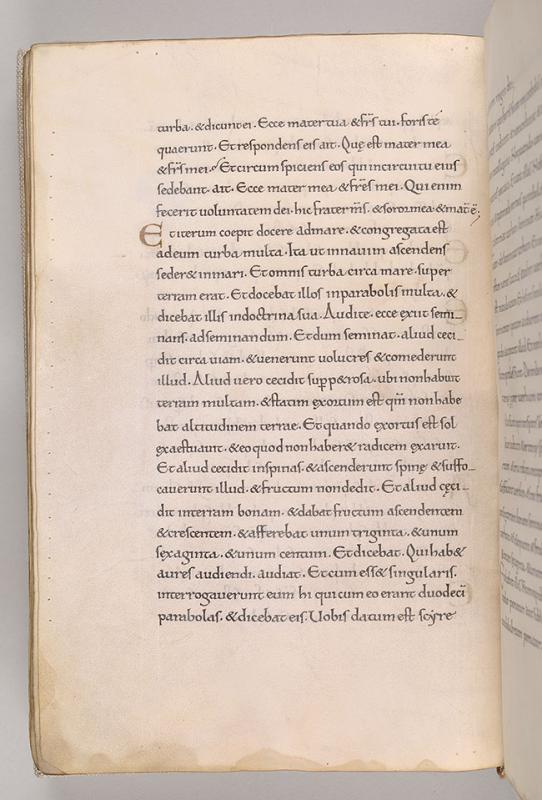 turba. & dicunt ei. Ecce mater tua & frs tui. foris te
quaerunt. Et respondens eis ait. Quę est mater mea
& frs mei. Et circumspiciens eos qui in circuitu eius
sedebant. ait. Ecce mater mea & frēs mei. Qui enim
fecerit voluntatem dei. hic frater m̅s. & soror mea & mat̅ ē.
Et iterum coepit docere ad mare. & congregata est
ad eum turba multa. Ita ut in navim ascendens
seder& in mari. Et omnis turba circa mare. super
terram erat. Et docebat illos in parabolis multa. &
dicebat illis in doctrina sua. Audite. ecce exiit semi_
nans. ad seminandum. Et dum seminat. aliud ceci_
dit circa uiam. & uenerunt uolucres & comederunt
illud. Aliud uero cecidit sup p&rosa. ubi non habuit
terram multam. & statim exortum est qm̅ non habe
bat altitudinem terrae. Et quando exortus est sol
exaestuauit. & eo quod non haber& radicem exaruit.
Et aliud cecidit in spinas. & ascenderunt spinę & suffo_
cauerunt illud. & fructum non dedit. Et aliud ceci_
dit in terram bonam. & dabat fructum ascendentem
& crescentem. & afferebat unum triginta. & unum
sexaginta. & unum centum. Et dicebat. Qui hab&
aures audiendi. audiat. Et cum ess& singularis.
interrogauerunt eum hi qui cum eo erant duodeci̅
parabolas. & dicebat eis. Uobis datum est scyre